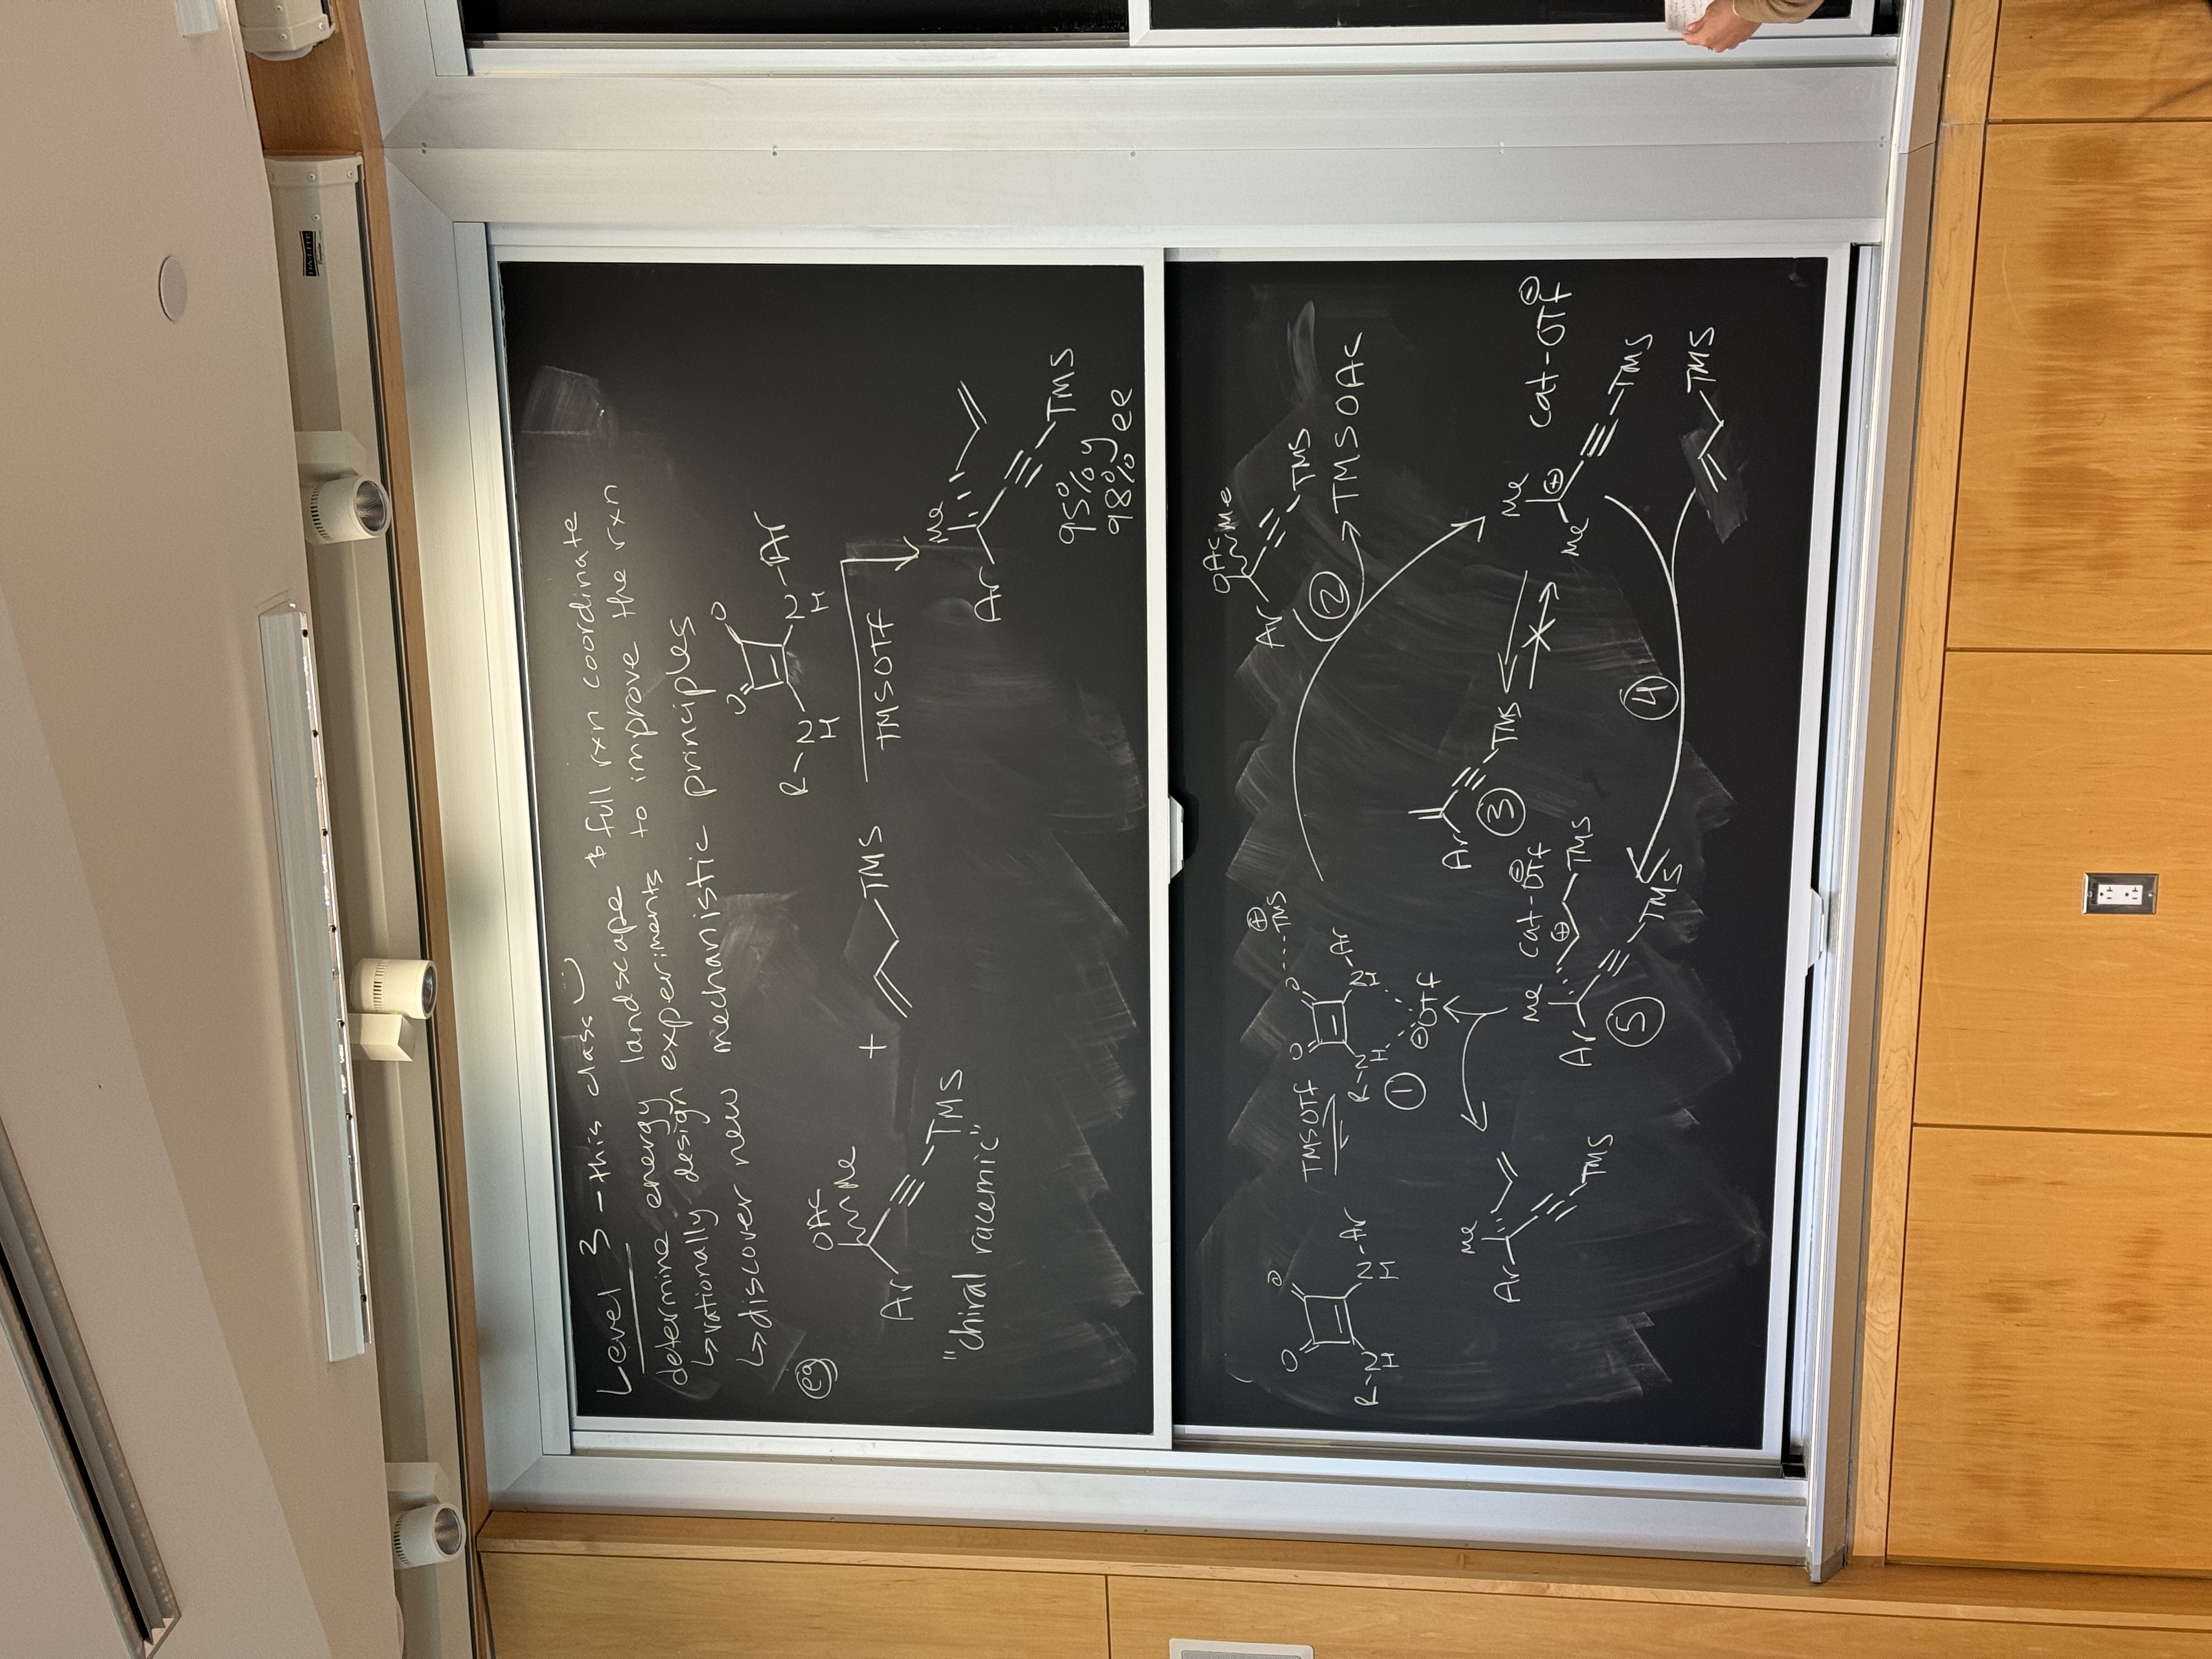 DA-LITE
Level 3 - this class
determine energy landscape & full rxn coordinate
↳ rationally design experiments to improve the rxn
↳ discover new mechanistic principles
eg
OAc
Me
Ar
TMS
"chiral racemic"
+
TMS
O
O
R
N
H
N
H
Ar
TMSOTf
Me
Ar
TMS
95% y
98% ee
O
O
R
N
H
N
H
Ar
TMSOTf
O
O
TMS
⊕
R
N
H
N
H
Ar
①
⊖OTf
OAc
Me
Ar
TMS
②
TMSOAc
Ar
TMS
③
Me
⊕
Me
TMS
cat-OTf⊖
Me
Ar
TMS
Me
cat-OTf⊖
Ar
⊕
TMS
TMS
⑤
④
TMS